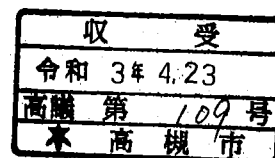 収受
令和 3年 4.23
高議 第 109 号
高槻市